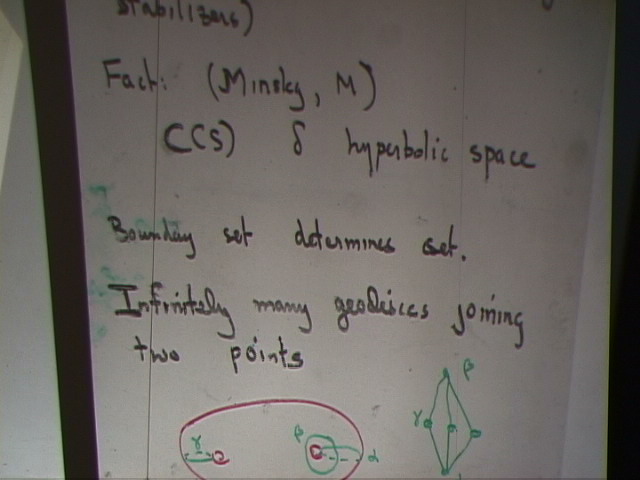 stabilizers)
Fact: (Minsky, M)
C(S) δ hyperbolic space
Bounday set determines set.
Infinitely many geodesics joining
two points
β
γ
γ β α